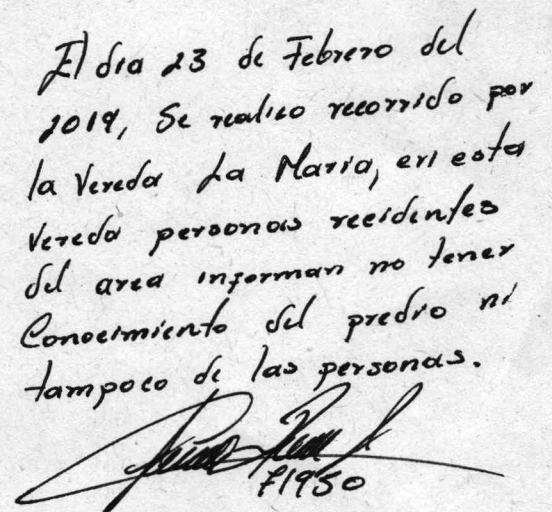 El dia 23 de Febrero del
2019, Se realico recorrido por
la Vereda La Maria, en esta
Vereda personas recidentes
del area informan no tener
Conocimiento del predio ni
tampoco de las personas.
f1950